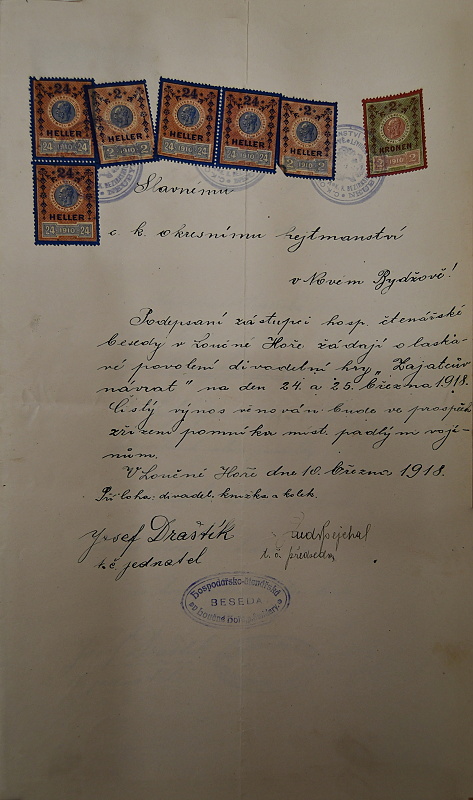 24 2 24 24 2 2
HELLER HELLER HELLER HELLER HELLER KRONEN
24 1910 24 2 1910 2 24 1910 24 24 1910 24 2 1910 2 2 1910 2
24
HELLER
24 1910 24
Slavnému
c. k. okresnímu hejtmanství
v Novém Bydžově!
Podepsaní zástupci hosp. čtenářské
besedy v Loučné Hoře žádají o laska-
vé povolení divadelní hry „Zajatcův
návrat" na den 24. a 25. března 1918.
Čistý výnos věnován bude ve prospěch
zřízení pomníku míst. padlým vojí-
nům.
V Loučné Hoře dne 10. března 1918.
Příloha: divadel. knížka a kolek.
Josef Draštík
t. č. jednatel
t. č. předseda
Hospodářsko-čtenářská
BESEDA